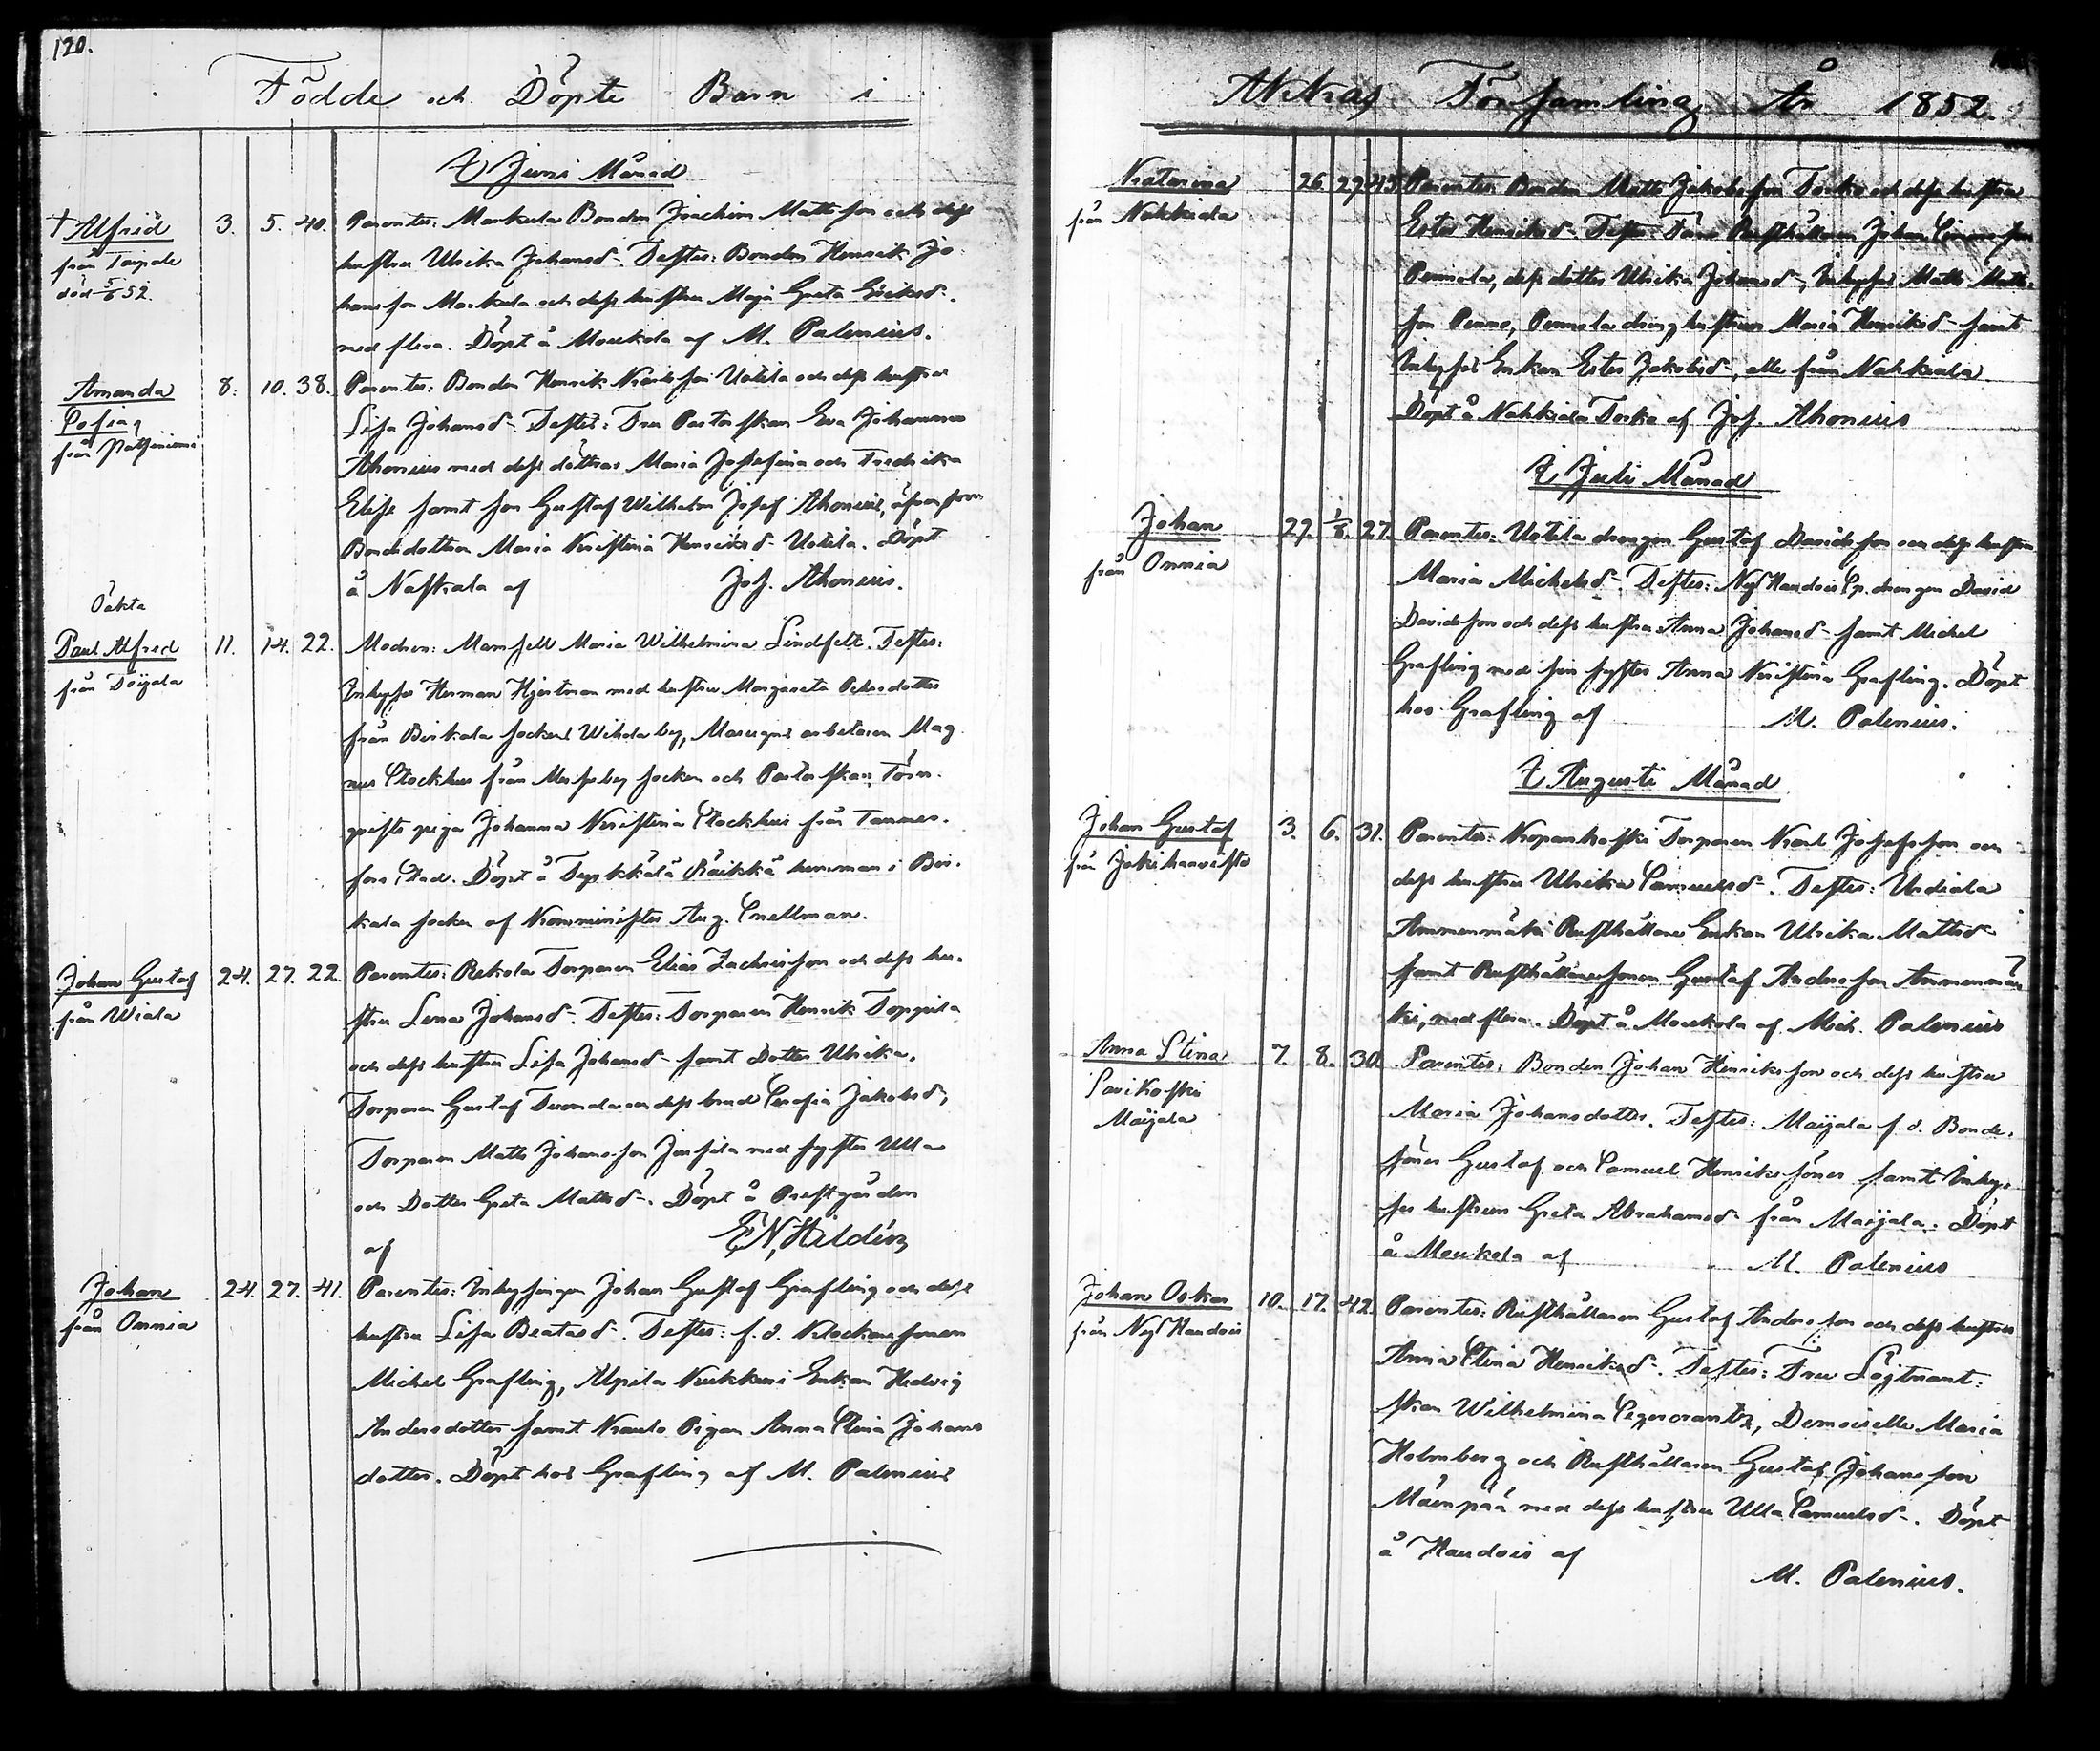 120.
Födde och Döpte Barn i
I Juni Månad
† Alfrid
från Taipale
död 5/6 52.
3. 5. 40.
Parentes: Moukola Bonden Joachim Mattsson och dess
hustru Ulrika Johansd. Testes: Bonden Henrik Jo
hansson Moukola och dess hustru Maja Greta Eriksd.
med flera. Döpt å Moukola af M. Palenius.
Amanda
Sofia,
från
8. 10. 38.
Parentes: Bonden Henrik Karlsson Uotila och dess hustru
Lisa Johansd. Testes: Fru Pastorskan Eva Johanna
Ahonius med dess döttrar Maria Josefina och Fredrika
Elise samt son Gustaf Wilhelm Josef Ahonius, äfvensom
Bondedottren Maria Kristina Henriksd. Uotila. Döpt
å Naskala af Jos. Ahonius.
Oäkta
Paul Alfred
från Toijala
11. 14. 22.
Modren: Mamsell Maria Wilhelmina Lindfelt. Testes:
Inhyses Herman Hjertman med hustru Margareta Petersdotter
från Birkala socken Wihola by, Masugns arbetaren Mag
nus Stockhus från socken och
gifta piga Johanna Kristina Stockhus från Tammer-
fors Stad. Döpt å Tyrkkälä Räikkä hemman i Bir-
kala socken af Komminister Aug. Snellman.
Johan Gustaf
från Wiala
24. 27. 22.
Parentes: Rekola Torparen Elias Zachrisson och dess hu-
stru Lena Johansd. Testes: Torparen Henrik Toppila
och dess hustru Lisa Johansd samt Dotter Ulrika,
Torparen Gustaf och dess brud Serafia Jakobsd,
Torparen Matts Johansson Jussila med syster Ulla
och Dotter Greta Mattsd. Döpt å Prestgården
af E N, Hildén
Johan
från Onnia
24. 27. 41.
Parentes: Inhysingen Johan Gustaf Grafling och dess
hustru Lisa Beatasd. Testes: f. d. Klockaresonen
Michel Grafling, Alpila Kukkuri Enkan Hedvig
Andersdotter samt Krauts Pigan Anna Stina Johans
dotter. Döpt hos Grafling af M. Palenius
Akkas Församling År 1852.
Katarina
från Nahkiala
26. 27. 45.
Parentes: Bonden Matts Jakobsson Torko och dess hustru
Ester Henriksd. Testes: Rusthållaren Johan Simonsson
Pennola, dess dotter Ulrika Johansd, Inhyses Matts Matts-
son Penno, Pennola dräng hustrun Maria Henriksd samt
Inhyses Enkan Ester Jakobsd, alla från Nahkiala
Döpt å Nahkiala Torko af Jos. Ahonius
I Juli Månad
Johan
från Onnia
27. 1/8. 27.
Parentes: Uotila drängen Gustaf Davidsson och dess hustru
Maria Michelsd. Testes: Nyl Haudois Sp. drängen David
Davidsson och dess hustru Anna Johansd samt Michel
Grafling med sin syster Anna Kristina Grafling. Döpt
hos Grafling af M. Palenius.
I Augusti Månad
Johan Gustaf
från Jokihaavisto
3. 6. 31.
Parentes: Kopankoski Torparen Karl Josefsson och
dess hustru Ulrika Samuelsd. Testes: Urdiala
Ammenmäki Rusthållare Enkan Ulrika Mattsd
samt Rusthållaresonen Gustaf Andersson Ammenmä
ki, med flera. Döpt å Moukola af Mich. Palenius
Anna Stina
Sarikoski
Maijala
7. 8. 30.
Parentes: Bonden Johan Henriksson och dess hustru
Maria Johansdotter. Testes: Maijala f. d. Bonde-
söner Gustaf och Samuel Henrikssöner samt Inhy-
ses hustrun Greta Abrahamsd från Maijala: Döpt
å Moukola af M. Palenius
Johan Oskar
från Nyl Haudois
10. 17. 42.
Parentes: Rusthållaren Gustaf Andersson och dess hustru
Anna Stina Henriksd. Testes: Fru Löjtnant-
skan Wilhelmina Segercrantz, Demoiselle Maria
Holmberg och Rusthållaren Gustaf Johansson
Mäenpää med dess hustru Ulla Samuelsd. Döpt
å Haudois af
M. Palenius.